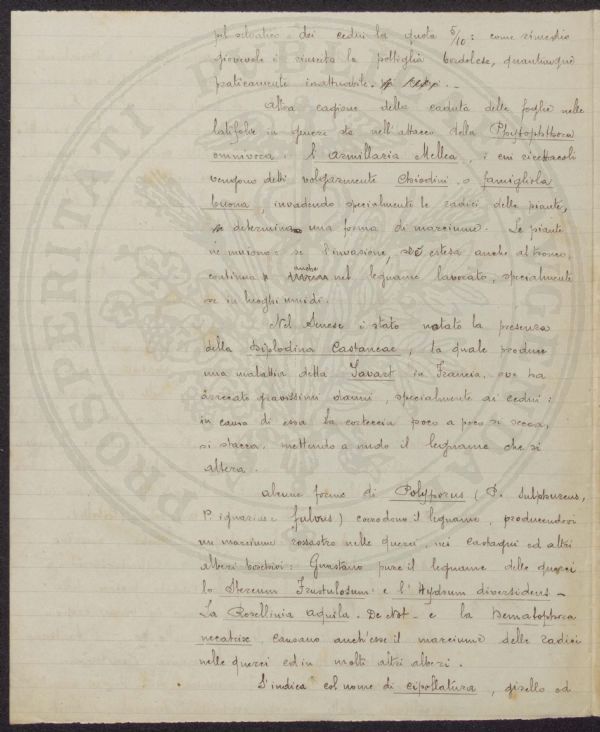 pel selvatico dei cedui la quota 5/10: come rimedio
giovevole è riuscita la poltiglia bordolese, quantunque
praticamente inattuabile.
Altra cagione della caduta delle foglie nelle
latifolie in genere sta nell'attacco della Phytophthora
omnivora: l'Armillaria Mellea, i cui ricettacoli
vengono detti volgarmente Chiodini o famigliola
buona, invadendo specialmente le radici delle piante,
determina una forma di marciume. Le piante
ne muoiono: se l'invasione, si è estesa anche al tronco,
continua anche nel legname lavorato, specialmente
se in luoghi umidi.
Nel Senese è stato notato la presenza
della Diplodina Castaneae, la quale produce
una malattia detta Javart in Francia, ove ha
arrecato gravissimi danni, specialmente ai cedui:
in causa di essa la corteccia poco a poco si secca,
si stacca, mettendo a nudo il legname che si
altera.
Alcune forme di Polyporus (P. Sulphureus,
P. igniarius e fulvus) corrodono il legname, producendovi
un marciume rossastro nelle querci, nei castagni ed altri
alberi boschivi: Guastano pure il legname delle querci
lo Stereum Frustulosum e l'Hydnum diversidens -
La Rosellinia aquila. De Not - e la Dematophora
necatrix, causano anch'esse il marciume delle radici
nelle querci ed in molti altri alberi.
S'indica col nome di cipollatura, girello od
PROSPERITATI PUBLICAE